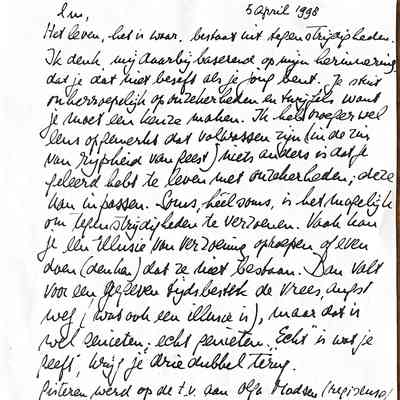 Im, 5 april 1998
Het leven, het is waar, bestaat uit tegenstrijdigheden.
Ik denk, mij daarbij baserend op mijn herinnering,
dat je dat niet beseft als je jong bent. Je stuit
onherroepelijk op onzekerheden en twijfels want
je moet een keuze maken. Ik heb weleer wel
eens opgemerkt dat volwassen zijn (in de zin
van rijpheid van geest) niets anders is dat je
geleerd hebt te leven met onzekerheden; deze
kan inpassen. Soms, héél soms, is het mogelijk
om tegenstrijdigheden te verzoenen. Vaak kan
je een illusie van verzoening oproepen of even
doen (denken) dat ze niet bestaan. Dan valt
voor een gegeven tijdsbestek de vrees, angst
weg (was ook een illusie is), maar dat is
wel genieten: echt genieten. "Echt" is wat je
geeft, krijg je driedubbel terug.
Gisteren werd op de t.v. aan Olga Madsen (regisseuse)